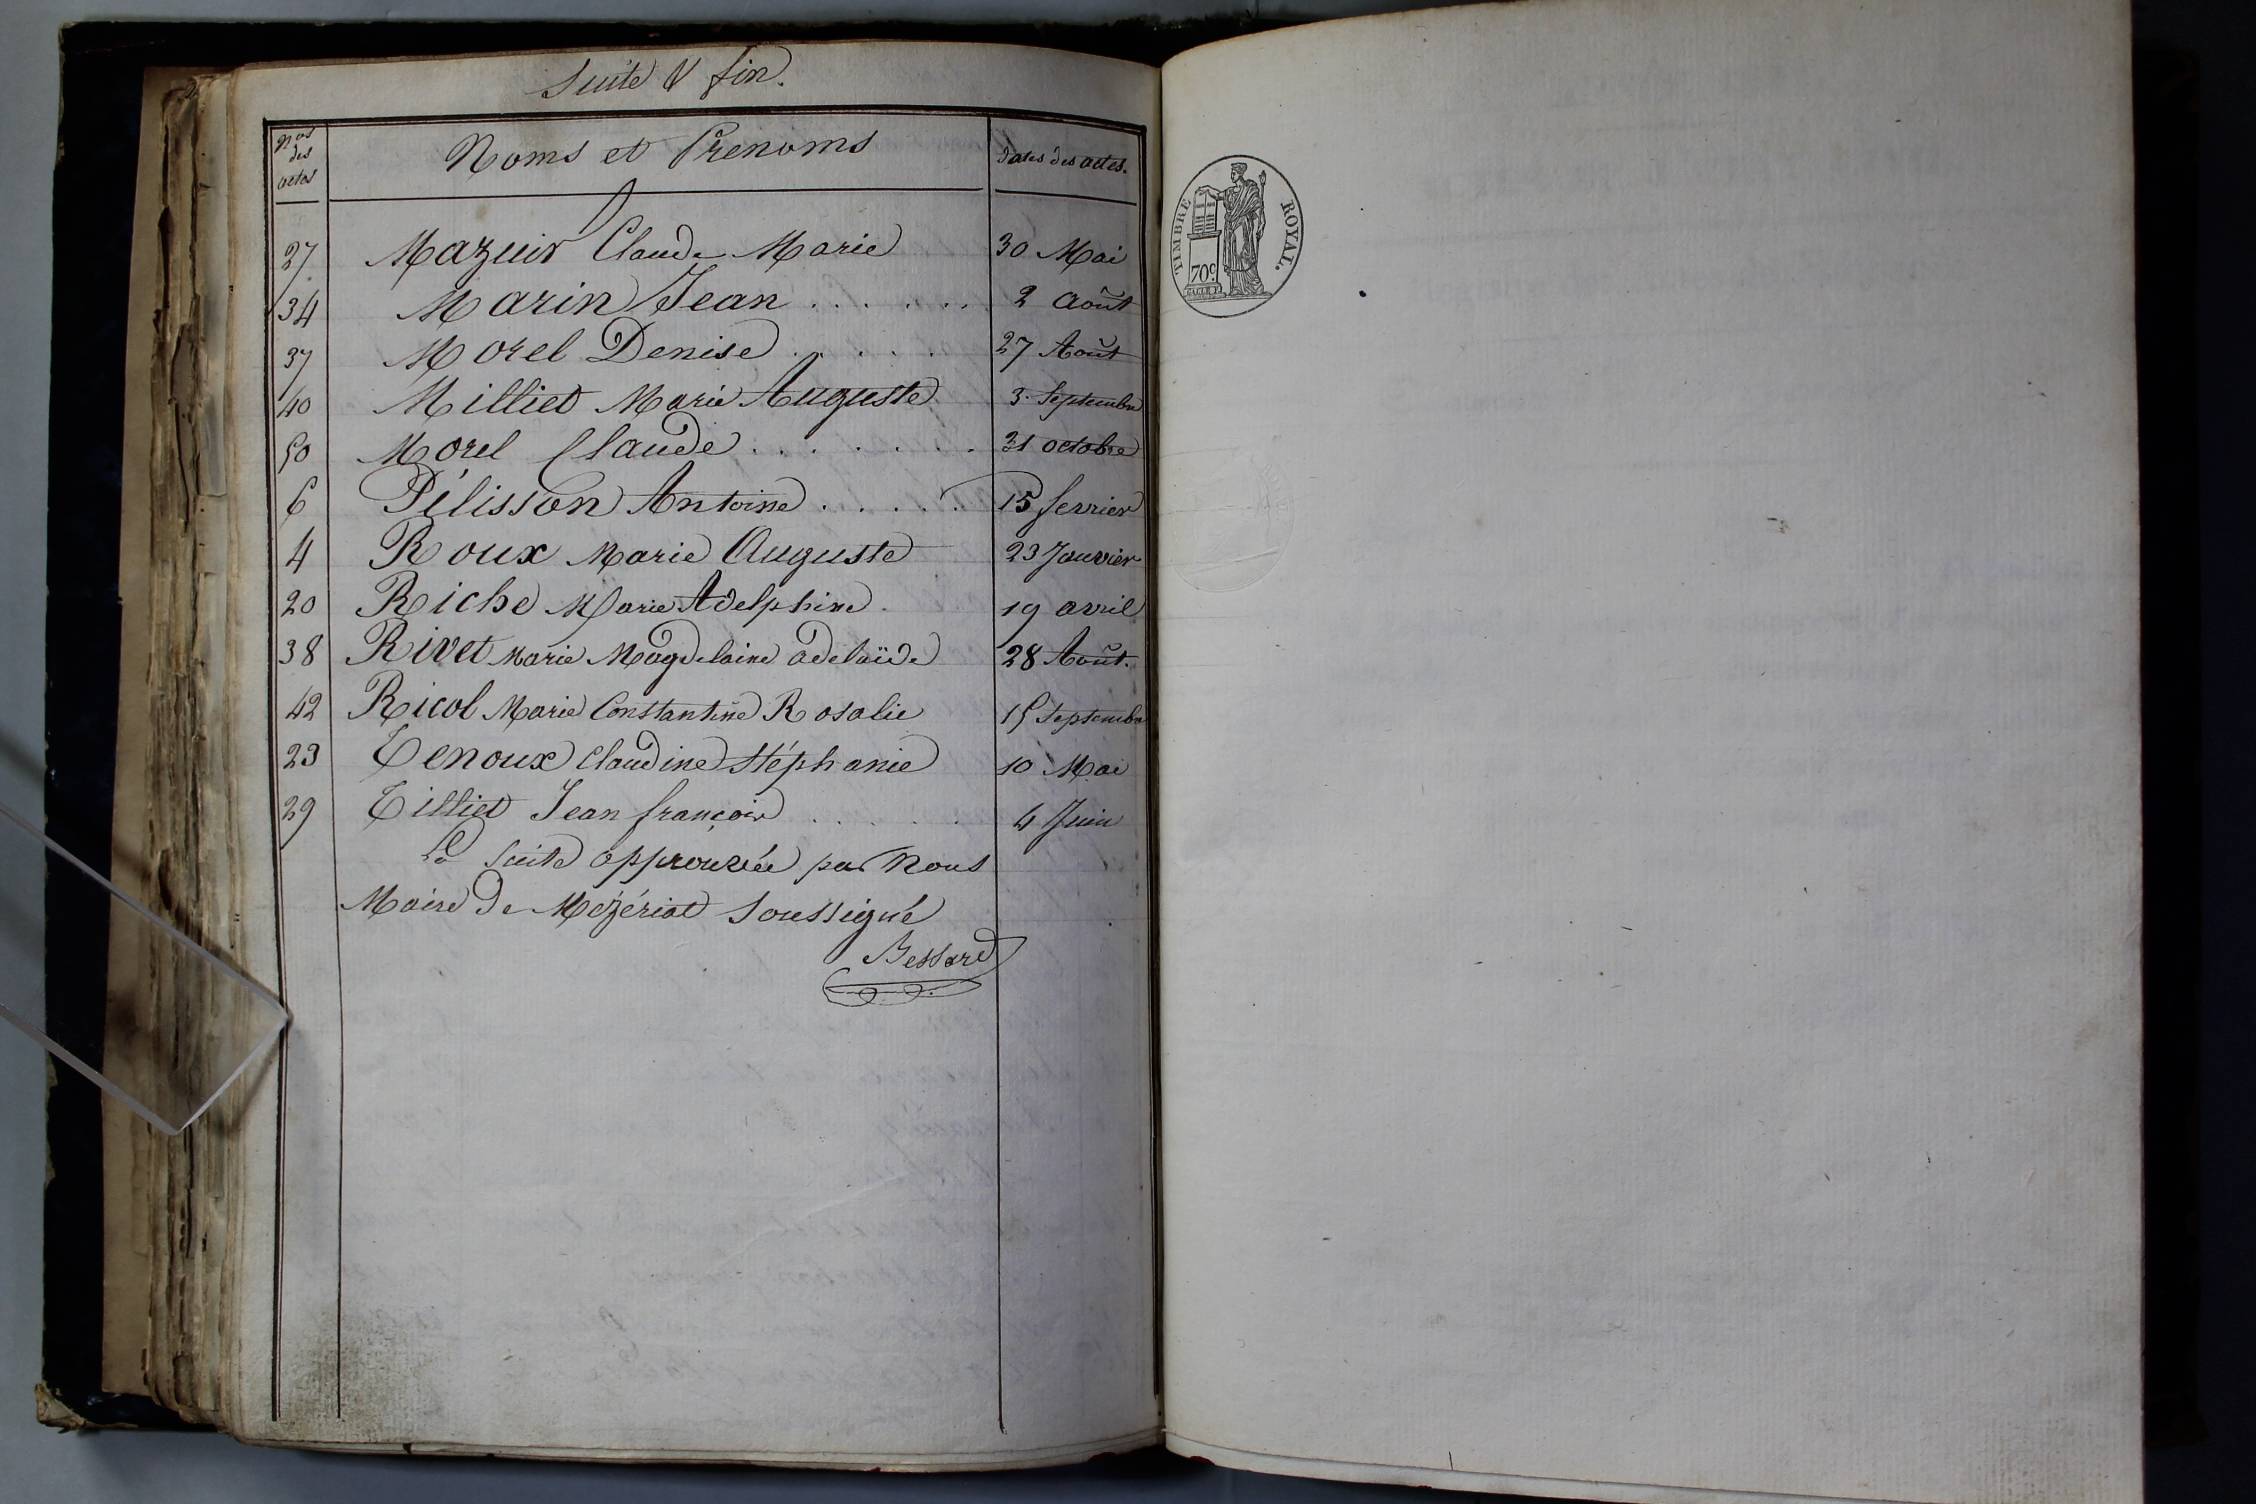 Suite & fin.
Nos des actes Noms et Prénoms dates des actes.
27 Mazuir Claude Marie 30 Mai
34 Marin Jean . . . . . . 2 août
37 Morel Denise . . . . 27 Août
40 Milliet Marie Auguste 3 Septembre
50 Morel Claude . . . . . . 31 octobre
6 Pélisson Antoine . . . . . 15 fevrier
4 Roux Marie Auguste 23 Janvier
20 Riche Marie Adelphine . 19 avril
38 Rivet Marie Magdelaine adelaïde 28 Août.
42 Ricol Marie Constantine Rosalie 15 Septembre
23 Tenoux Claudine Stéphanie 10 Mai
29 Tilliet Jean françois . . . . 4 Juin
La suite approuvée par Nous
Maire de Mézériat Soussigné
Bessard
TIMBRE ROYAL.
70c